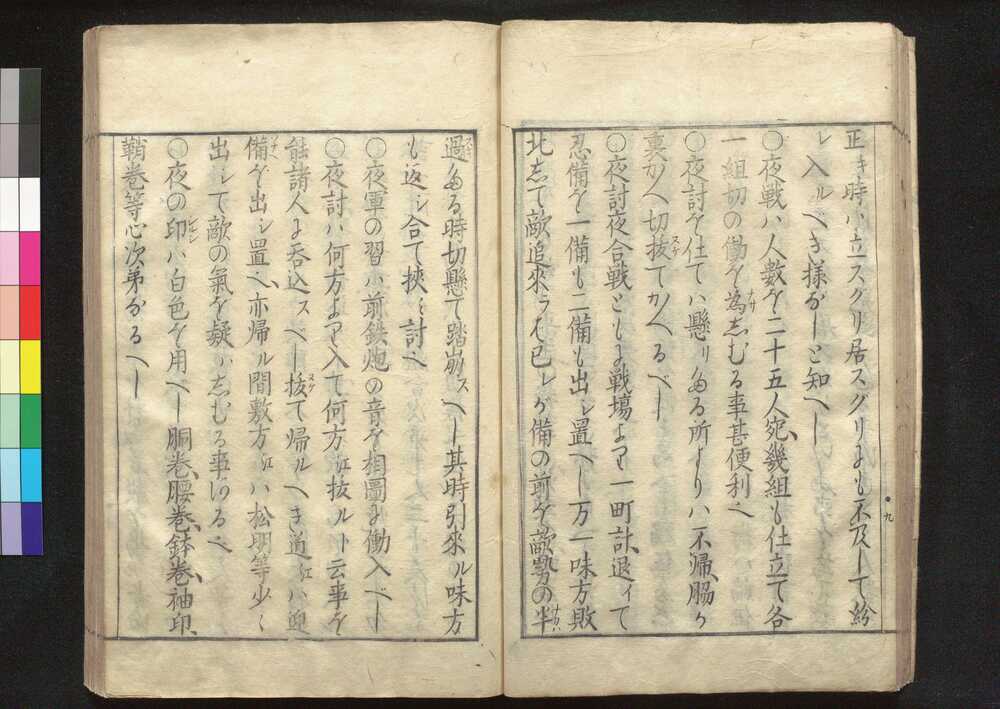 正き時ハ立スグリ居スグリにも不及して紛
レ入ルべき様なしと知べし
○夜戰ハ人數を二十五人宛幾組も仕立て各
一組切の働を為しむる事甚便利也
○夜討を仕てハ懸リたる所よりハ不帰脇か
裏かへ切抜てかへるべし
○夜討夜合戰ともに戰場より一町計退ィて
忍備を一備も二備も出シ置べし万一味方敗
北して敵追來ラば己レが備の前を敵勢の半
過たる時切懸て踏崩スべし其時引來ル味方
も返シ合て挾ミ討也
○夜軍の習ハ前鉄炮の音を相圖に働入べし
○夜討ハ何方より入て何方江抜ルト云事を
能諸人に呑込スべし抜て帰ルべき道江ハ迎
備を出シ置也亦帰ル間敷方江ハ松明等少々
出して敵の氣を疑ハしむる事有るべし
○夜の印ハ白色を用べし胴卷腰卷鉢卷袖印
鞘卷等心次第なるべし
九